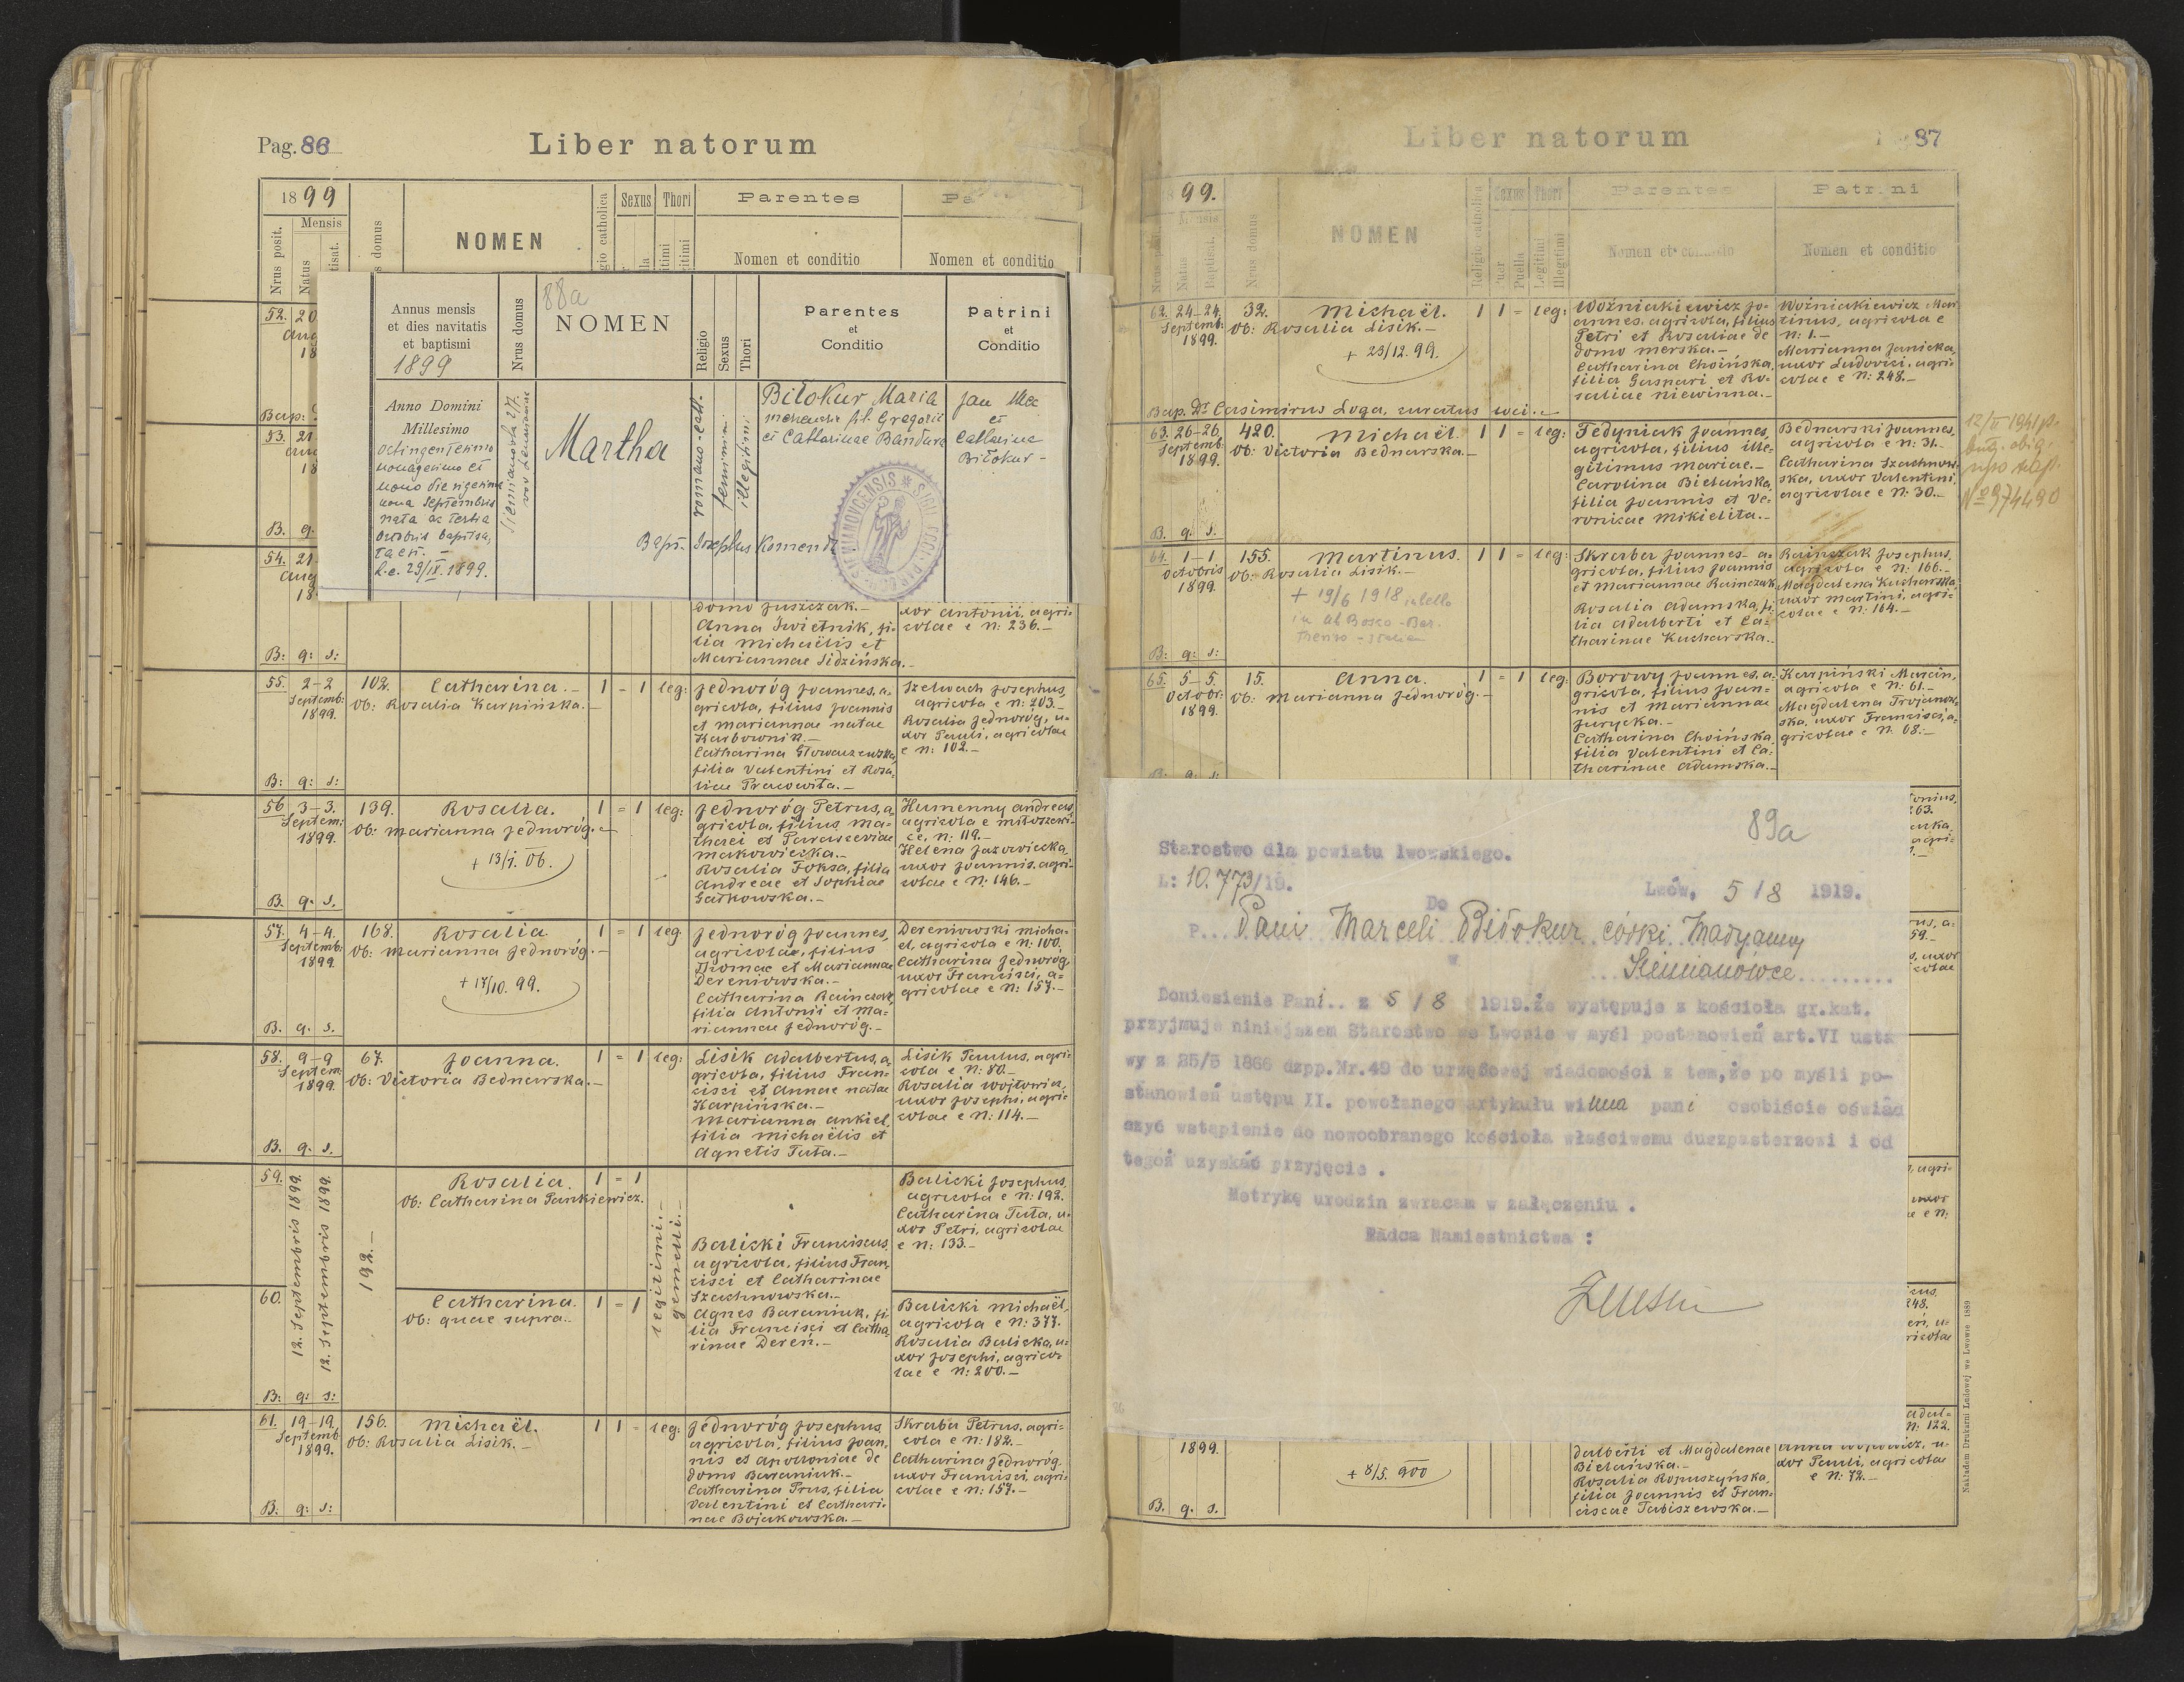 Pag. 86
Liber natorum
1899
Mensis
Nrus posit.
Natus
NOMEN
Sexus
Thori
Parentes
Nomen et conditio
Nomen et conditio
52. 20
Aug
18
Bap:
53. 21
18
B. q.
54. 21
Aug
18
88a
Annus mensis
et dies navitatis
et baptismi
1899
Nrus domus
NOMEN
Religio
Sexus
Thori
Parentes
et
Conditio
Patrini
et
Conditio
Anno Domini
Millesimo
octingentesimo
nonagesimo et
nono die vigesima
nona Septembris
nata ac tertia
Octobris baptisa,
ta est. –
d.e. 29/IX.1899.
Martha
romano-cath.
feminini
illegitimi
Biłokur Maria
fil. Gregorii
et Catharinae Bandura
Jan
et
Catharina
Biłokur –
Bapt. Josephus Komenda
domo Juszczak.–
Anna Kwietnik, fi-
lia Michaëlis et
Mariannae Sidzińska.–
xor Antonii, agri-
colae e N: 236.–
B: q: s:
55. 2–2 Septemb: 1899.
102.
Catharina.–
Ob: Rosalia Karpińska.–
1 – 1 leg:
Jednoróg Joannes, a-
gricola, filius Joannis
et Mariannae natae
Karbownik.–
Catharina Głowaczewska,
filia Valentini et Rosa-
liae Pracowita.–
Szelwach Josephus,
agricola e N: 203.–
Rosalia Jednoróg, u-
xor Pauli, agricolae
e N: 102.–
B: q: s:
56 3–3. Septem: 1899.
139.
Rosalia.
Ob: Marianna Jednoróg.–
+ 13/1. 06.
1 = 1 leg:
Jednoróg Petrus, a-
gricola, filius Ma-
thaei et Parasceviae
Makowiecka.–
Rosalia Foksa, filia
Andreae et Sophiae
Gatkowska.–
Humenny Andreas,
agricola e Miłoszowi-
ce, N: 119.–
Helena Jazowiecka,
uxor Joannis, agri-
colae e N: 146.–
B. q. s.
57. 4–4. Septemb: 1899.
168.
Rosalia.
Ob: Marianna Jednoróg.–
+ 17/10. 99.
1 = 1 leg.
Jednoróg Joannes,
agricolae, filius
Thomae et Mariannae
Dereniowska.–
Catharina Rainczak,
filia Antonii et Ma-
riannae Jednoróg.–
Dereniowski Micha-
el, agricola e N: 100.
Catharina Jednoróg,
uxor Francisci, a=
gricolae e N: 157.–
B. q. s.
58. 9–9 Septem: 1899.
67.
Joanna.
Ob: Victoria Bednarska.–
1 = 1 leg:
Lisik Adalbertus, a-
gricola, filius Fran-
cisci et Annae natae
Karpińska.–
Marianna Ankiel,
filia Michaëlis et
Agnetis Tuta.–
Lisik Paulus, agri-
cola e N: 80.–
Rosalia Wojtowicz,
uxor Josephi, agri-
colae e N: 114.–
B. q. s.
59.
12. Septembris 1899.
12. Septembris 1899.
192.–
Rosalia.
Ob: Catharina Pankiewicz.
1 = 1
legitimi.–
gemelli.–
Balicki Franciscus,
agricola, filius Fran-
cisci et Catharinae
Szachnowska.–
Agnes Baraniuk, fi-
lia Francisci et Catha-
rinae Dereń.–
Balicki Josephus,
agricola e N: 192.
Catharina Tuta, u-
xor Petri, agricolae
e N: 133.–
60.
Catharina.
Ob: quae supra..
1 = 1
Balicki Michaël,
agricola e N: 377.
Rosalia Balicka, u-
xor Josephi, agrico-
lae e N: 200.–
B: q: s:
61. 19–19. Septemb 1899.
156.
Michaël.
Ob: Rosalia Lisik.–
1 1 – leg:
Jednoróg Josephus,
agricola, filius Joan-
nis et Apolloniae de
domo Baraniuk.–
Catharina Prus, filia
Valentini et Cathari-
nae Bojakowska.–
Skraba Petrus, agri-
cola e N: 182.–
Catharina Jednoróg,
uxor Francisci, agri-
colae e N: 157.–
B: q: s:
Liber natorum
87
99.
Nrus domus
NOMEN
Religio catholica
Sexus
Puella
Legitimi
Illegitimi
Parentes
Nomen et conditio
Patrini
Nomen et conditio
62. 24–24. Septemb: 1899.
32.
Michaël.
Ob: Rosalia Lisik.–
+ 23/12. 99.
1 1 = leg:
Woźniakiewicz Jo-
annes, agricola, filius
Petri et Rosaliae de
domo Merska.–
Catharina Choińska,
filia Gaspari et Ro-
saliae Niewinna.–
Woźniakiewicz Mar-
tinus, agricola e
N: 1.–
Marianna Janicka,
uxor Ludovici, agri-
colae e N: 248.–
Bap. Dr. Casimirus Loga, curatus loci.–
63. 26–26. Septemb: 1899.
420.
Michaël.
Ob: Victoria Bednarska.–
1 1 = leg:
Fedyniak Joannes,
agricola, filius ille-
gitimus Mariae.–
Carolina Bielańska,
filia Joannis et Ve-
ronicae Mikielita.–
Bednarski Joannes,
agricola e N: 31.–
Catharina Szachnow-
ska, uxor Valentini,
agricolae e N: 30.–
Nº 974490
B. q. s.
64. 1–1 Octobris 1899.
155.
Martinus.
Ob: Rosalia Lisik.–
+ 19/6 1918 in bello
1 1 = leg:
Skraba Joannes a-
gricola, filius Joannis
et Mariannae Rainczak
Rosalia Adamska, fi-
lia Adalberti et Ca-
tharinae Kucharska..
Rainczak Josephus,
agricola e N: 166.–
Magdalena Kucharska,
uxor Martini, agri-
colae e N: 164.–
B: q: s:
65. 5–5. Octobr: 1899.
15.
Anna.
Ob: Marianna Jednoróg.–
1 = 1 leg:
Borowy Joannes, a-
gricola, filius Joan-
nis et Mariannae
Jurycka.–
Catharina Choińska,
filia Valentini et Ca-
tharinae Adamska.–
Karpiński Marcin,
agricola e N: 61.–
Magdalena Trojanow-
ska, uxor Francisci, a-
gricolae e N: 68.–
89a
Starostwo dla powiatu lwowskiego.
L: 10.773/19.
Lwów, 5/8 1919.
Do
P... Pani Marceli Biłokur córki Maryanny
w
Siemianówce
Doniesienie Pani.. z 5/8 1919.że występuje z kościoła gr.kat.
przyjmuje niniejszem Starostwo we Lwowie w myśl postanowień art.VI usta
wy z 25/5 1868 dzpp.Nr.49 do urzędowej wiadomości z tem,że po myśli po-
stanowień ustępu II. powołanego artykułu winna pani osobiście oświad
czyć wstąpienie do nowoobranego kościoła właściwemu duszpasterzowi i od
tegoż uzyskać przyjęcie .
Metrykę urodzin zwracam w załączeniu .
Radca Namiestnictwa :
1899.
+ 8/5. 900
dalberti et Magdalenae
Bielańska.–
Rosalia Kopuszyńska,
filia Joannis et Fran-
ciscae Tabiszewska.–
xor Pauli, agricolae
e N: 72.–
B. q. s.
Nakładem Drukarni Ludowej we Lwowie 1889